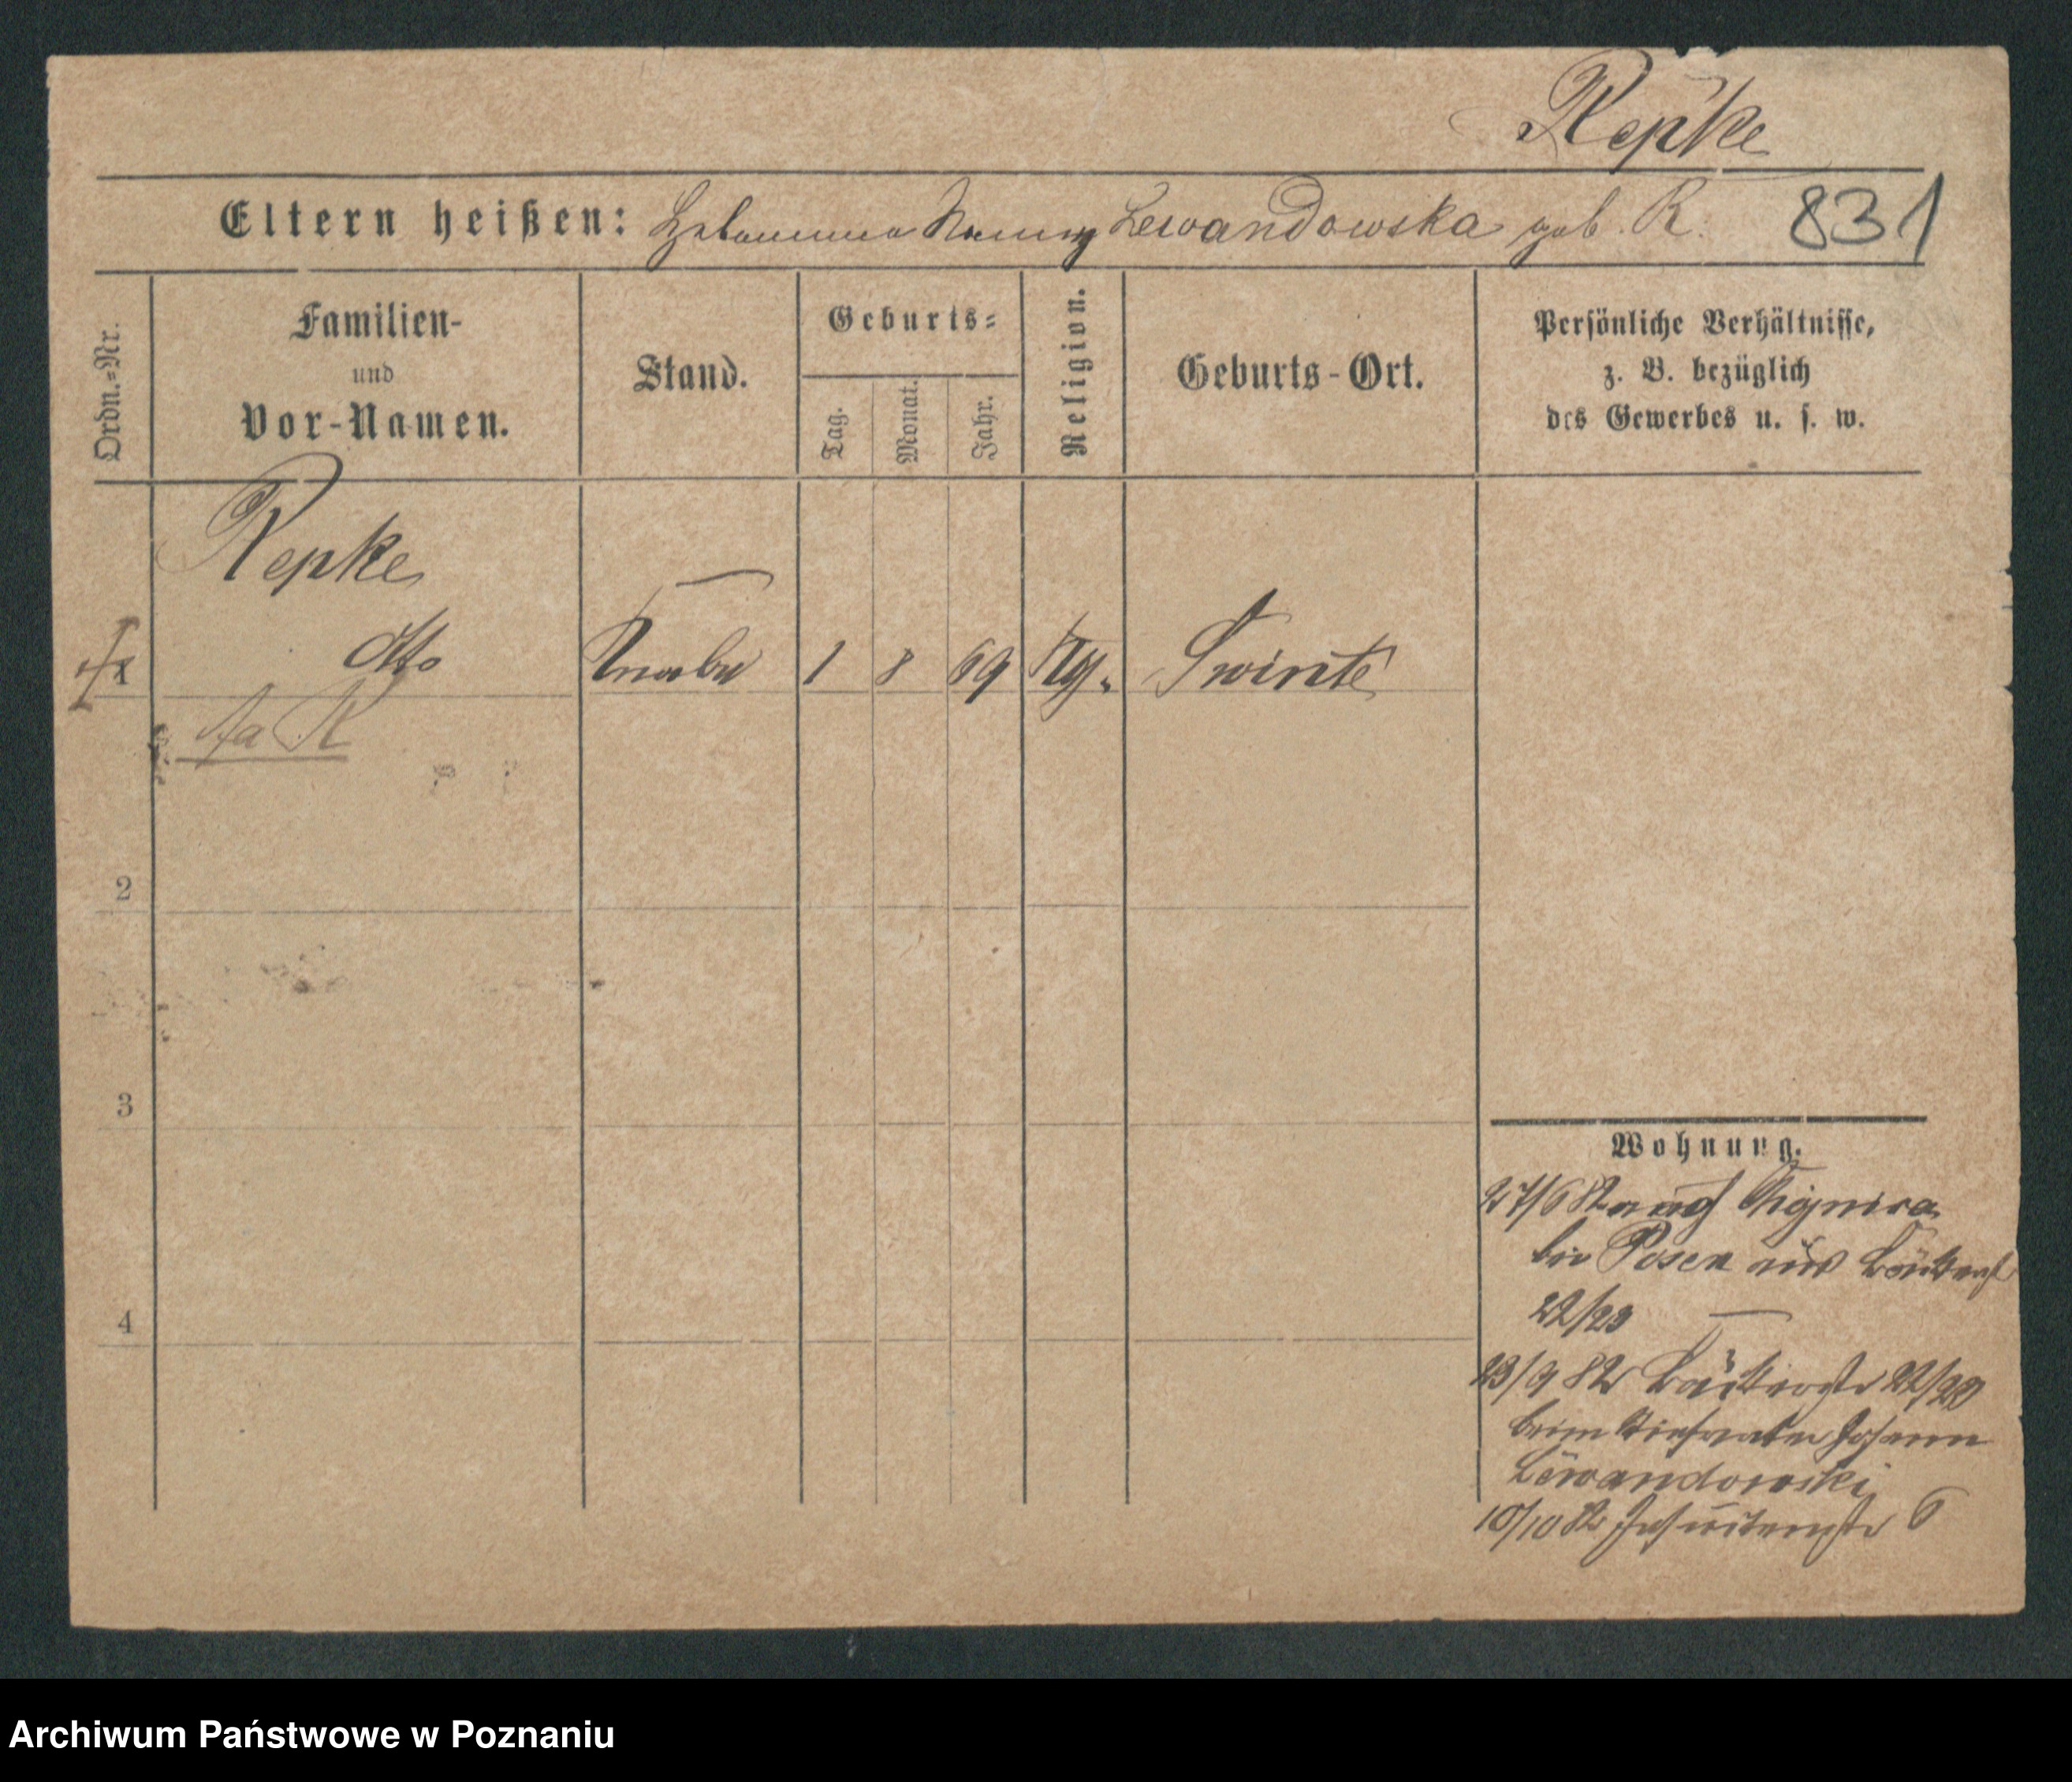 Repke
Eltern heißen: Hebamme Nanny Lewandowska geb. R. 831
Ordn.=Nr.
Familien-
und
Vor-Namen.
Stand.
Geburts=
Tag.
Monat.
Jahr.
Religion.
Geburts-Ort.
Persönliche Verhältnisse,
z. B. bezüglich
des Gewerbes u. s. w.
Repke
1 Otto Knabe 1 8 69 Swinte
2
3
4
Wohnung.
27/6 82 nach
bei Posen aus Bäckerst
22/23
23/9 82 Bäckerstr 22/23
beim Stiefvater Johann
Lewandowski
10/10 82 Jesuitenstr 6
Archiwum Państwowe w Poznaniu